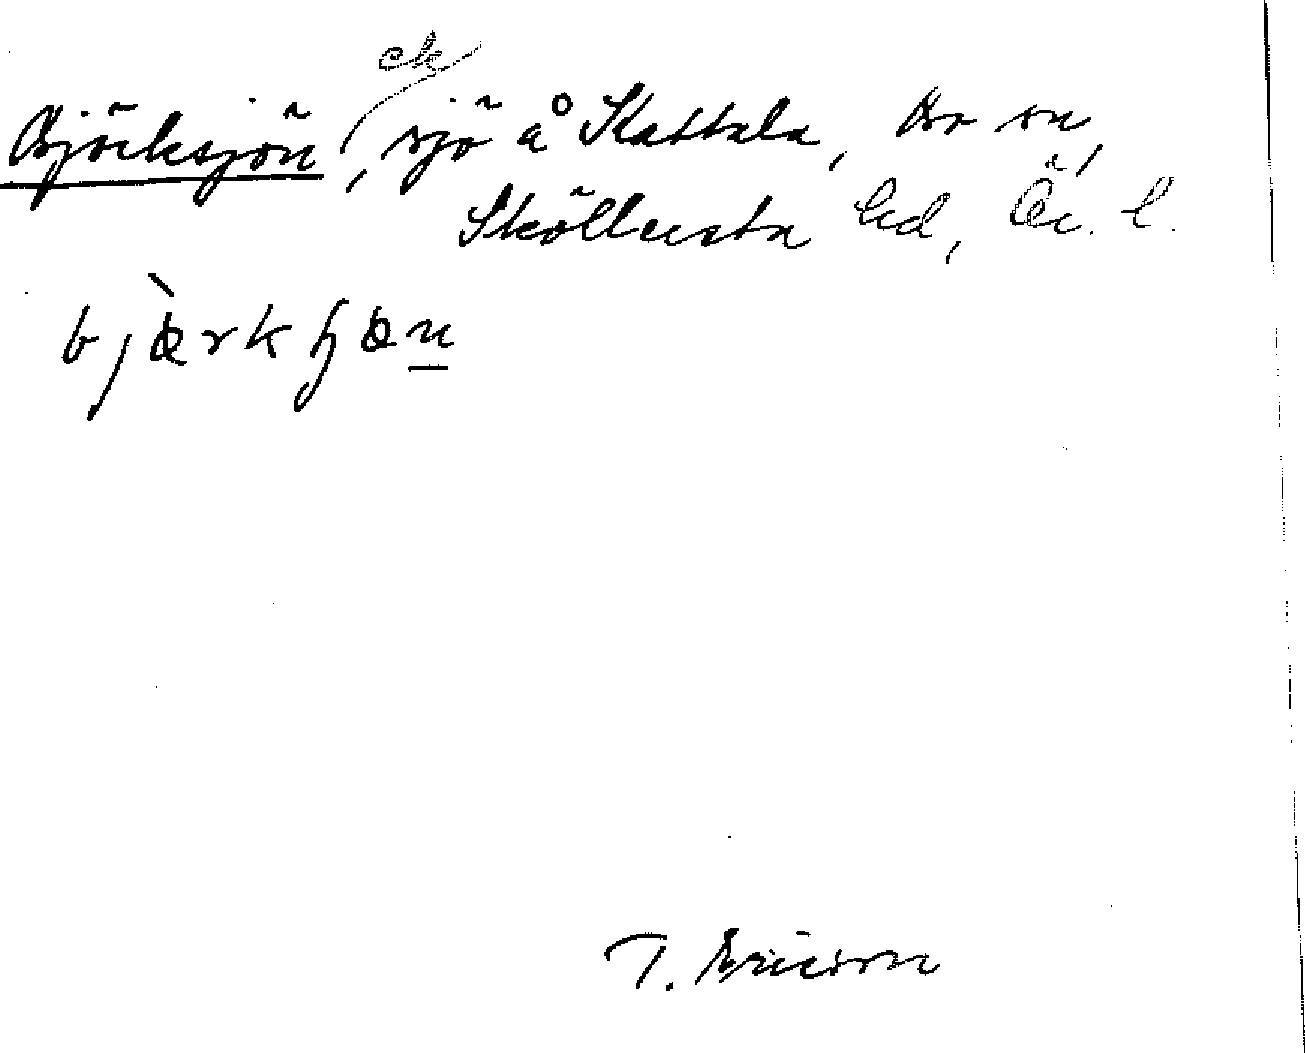 ek
Björksjön, sjö å Skattala, Bo sn,
Sköllersta hd, Ör. l.
bjærkʃøn
T. Ericson